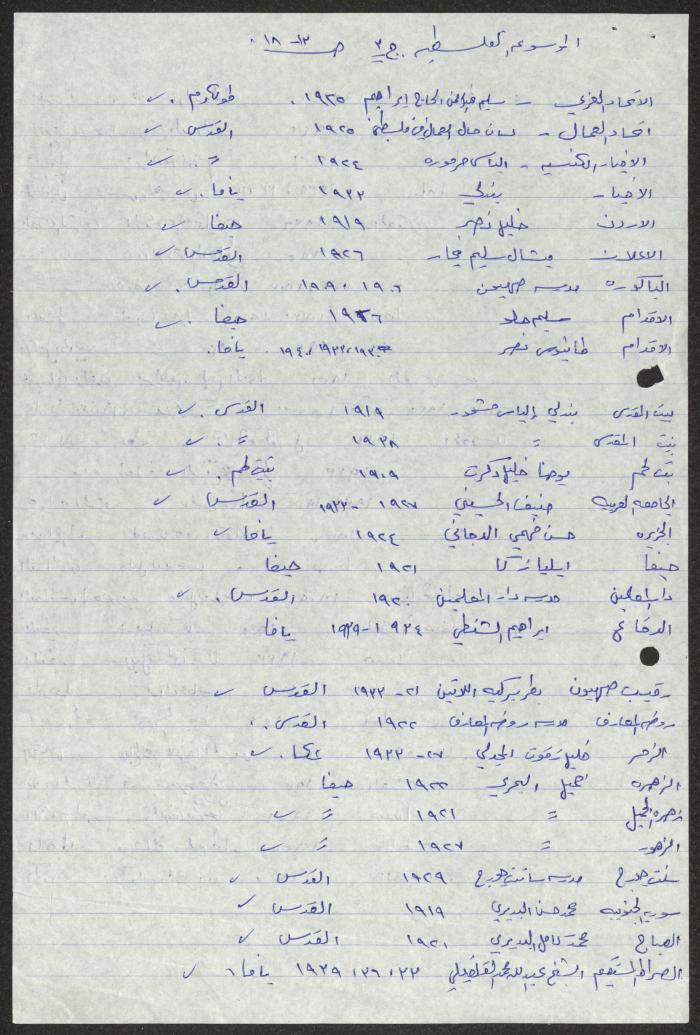 الموسوعه الفلسطينيه ج ٣ ص ١٣ - ١٨
الاتحاد العربي - سليم عبدالرحمن الحاج ابراهيم ١٩٢٥ . طولكرم .
اتحاد العمال - لسان حال العمال في فلسطين ١٩٢٥ القدس
الاخبار الكنسيه - الياس مرموره ١٩٢٤ = .
الاخبار - بندلي ١٩٢٣ يافا .
الاردن خليل نصر ١٩١٩ حيفا
الاعلان ميشال سليم نجار ١٩٢٦ القدس
الباكوره مدرسه صهيون ١٩٠٦ - ١٩٠٩ القدس .
الاقدام سليم حلو ١٩٢٦ حيفا .
الاقدام طانيوس نصر ١٩٣٠، ١٩٣٣، ١٩٤٠ يافا .
بيت المقدس بندلي إلياس مشحور ١٩١٩ القدس .
بيت المقدس = ١٩٣٨ =
بيت لحم يوحنا خليل دكرت ١٩٠٩ بيت لحم .
الجامعه العربيه منيف الحسيني ١٩٢٧ - ١٩٣٣ القدس
الجزيره حسن فهمي الدجاني ١٩٢٤ يافا
حيفا ايليا زكا ١٩٢١ حيفا
دار المعلمين مدرسه دار المعلمين ١٩٢٠ القدس .
الدفاع ابراهيم الشنطي ١٩٣٤ - ١٩٣٩ يافا
رقيب صهيون بطريركيه اللاتين ٢١ - ١٩٣٣ القدس
روضه المعارف مدرسه روضه المعارف ١٩٢٢ القدس .
الزمر خليل زقوت المجدلي ٢٧ - ١٩٣٣ عكا .
الزهره جميل البحري ١٩٢٢ حيفا
زهره الجميل = ١٩٢١ =
الزهور = ١٩٢٧ =
سنت جورج مدرسه سانت جورج ١٩٢٩ القدس
سوريه الجنوبيه محمد حسن البديري ١٩١٩ القدس
الصباح محمد كامل البديري ١٩٢١ القدس
الصراط المستقيم الشيخ عبدالله محمد القلقيلي ٢٣، ٢٦، ١٩٣٩ يافا